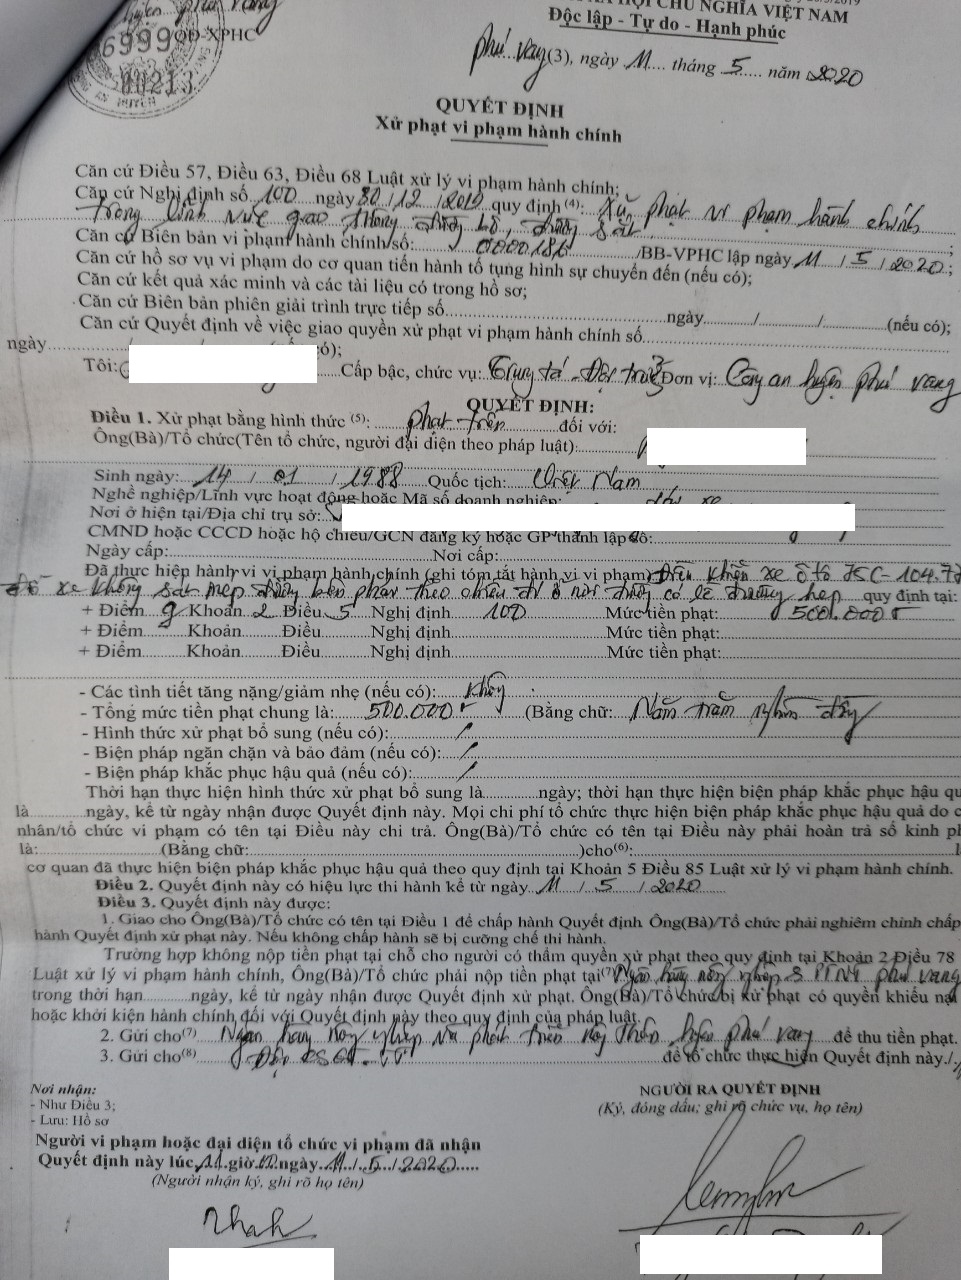 CHỦ NGHĨA VIỆT NAM
Độc lập - Tự do - Hạnh phúc
6999 QĐ-XPHC
00213
HUYỆN
Phú Vang (3), ngày 11 tháng 5 năm 2020
QUYẾT ĐỊNH
Xử phạt vi phạm hành chính
Căn cứ Điều 57, Điều 63, Điều 68 Luật xử lý vi phạm hành chính;
Căn cứ Nghị định số 100 ngày 30/12/2019 quy định (4): Xử phạt vi phạm hành chính
Trong lĩnh vực giao thông đường bộ, đường sắt ;
Căn cứ Biên bản vi phạm hành chính số: /BB-VPHC lập ngày 11/5/2020;
Căn cứ hồ sơ vụ vi phạm do cơ quan tiến hành tố tụng hình sự chuyển đến (nếu có);
Căn cứ kết quả xác minh và các tài liệu có trong hồ sơ;
Căn cứ Biên bản phiên giải trình trực tiếp số ngày / / (nếu có);
Căn cứ Quyết định về việc giao quyền xử phạt vi phạm hành chính số
ngày ó);
Tôi: Cấp bậc, chức vụ: Trung tá - Đội trưởng Đơn vị: Công an huyện Phú Vang
QUYẾT ĐỊNH:
Điều 1. Xử phạt bằng hình thức (5): phạt tiền đối với:
Ông(Bà)/Tổ chức(Tên tổ chức, người đại diện theo pháp luật):
Sinh ngày: 14/01/1988 Quốc tịch: Việt Nam
Nghề nghiệp/Lĩnh vực hoạt động hoặc Mã số doanh nghiệp: lái xe
Nơi ở hiện tại/Địa chỉ trụ sở:
CMND hoặc CCCD hoặc hộ chiếu/GCN đăng ký hoặc GP thành lập số:
Ngày cấp: Nơi cấp:
Đã thực hiện hành vi vi phạm hành chính (ghi tóm tắt hành vi vi phạm) Điều khiển xe ô tô 75C-104.7
đỗ xe không sát mép đường bên phải theo chiều đi ở nơi đường có lề đường hẹp quy định tại:
+ Điểm g Khoản 2 Điều 5 Nghị định 100 Mức tiền phạt: 500.000đ
+ Điểm Khoản Điều Nghị định Mức tiền phạt:
+ Điểm Khoản Điều Nghị định Mức tiền phạt:
- Các tình tiết tăng nặng/giảm nhẹ (nếu có): không
- Tổng mức tiền phạt chung là: 500.000đ (Bằng chữ: Năm trăm nghìn đồng
- Hình thức xử phạt bổ sung (nếu có): /
- Biện pháp ngăn chặn và bảo đảm (nếu có): /
- Biện pháp khắc phục hậu quả (nếu có): /
Thời hạn thực hiện hình thức xử phạt bổ sung là ngày; thời hạn thực hiện biện pháp khắc phục hậu qu
là ngày, kể từ ngày nhận được Quyết định này. Mọi chi phí tổ chức thực hiện biện pháp khắc phục hậu quả do c
nhân/tổ chức vi phạm có tên tại Điều này chi trả. Ông(Bà)/Tổ chức có tên tại Điều này phải hoàn trả số kinh ph
là: (Bằng chữ: )cho(6):
cơ quan đã thực hiện biện pháp khắc phục hậu quả theo quy định tại Khoản 5 Điều 85 Luật xử lý vi phạm hành chính.
Điều 2. Quyết định này có hiệu lực thi hành kể từ ngày 11/5/2020
Điều 3. Quyết định này được:
1. Giao cho Ông(Bà)/Tổ chức có tên tại Điều 1 để chấp hành Quyết định. Ông(Bà)/Tổ chức phải nghiêm chỉnh chấp
hành Quyết định xử phạt này. Nếu không chấp hành sẽ bị cưỡng chế thi hành.
Trường hợp không nộp tiền phạt tại chỗ cho người có thẩm quyền xử phạt theo quy định tại Khoản 2 Điều 78
Luật xử lý vi phạm hành chính, Ông(Bà)/Tổ chức phải nộp tiền phạt tại(7) Ngân hàng nông nghiệp & PTNT Phú Vang
trong thời hạn ngày, kể từ ngày nhận được Quyết định xử phạt. Ông(Bà)/Tổ chức bị xử phạt có quyền khiếu nại
hoặc khởi kiện hành chính đối với Quyết định này theo quy định của pháp luật.
2. Gửi cho(7) Ngân hàng nông nghiệp và phát triển nông thôn huyện Phú Vang để thu tiền phạt.
3. Gửi cho(8) Đội CSGT để tổ chức thực hiện Quyết định này./.
Nơi nhận:
- Như Điều 3;
- Lưu: Hồ sơ
NGƯỜI RA QUYẾT ĐỊNH
(Ký, đóng dấu; ghi rõ chức vụ, họ tên)
Người vi phạm hoặc đại diện tổ chức vi phạm đã nhận
Quyết định này lúc 11 giờ ngày 11/5/2020
(Người nhận ký, ghi rõ họ tên)